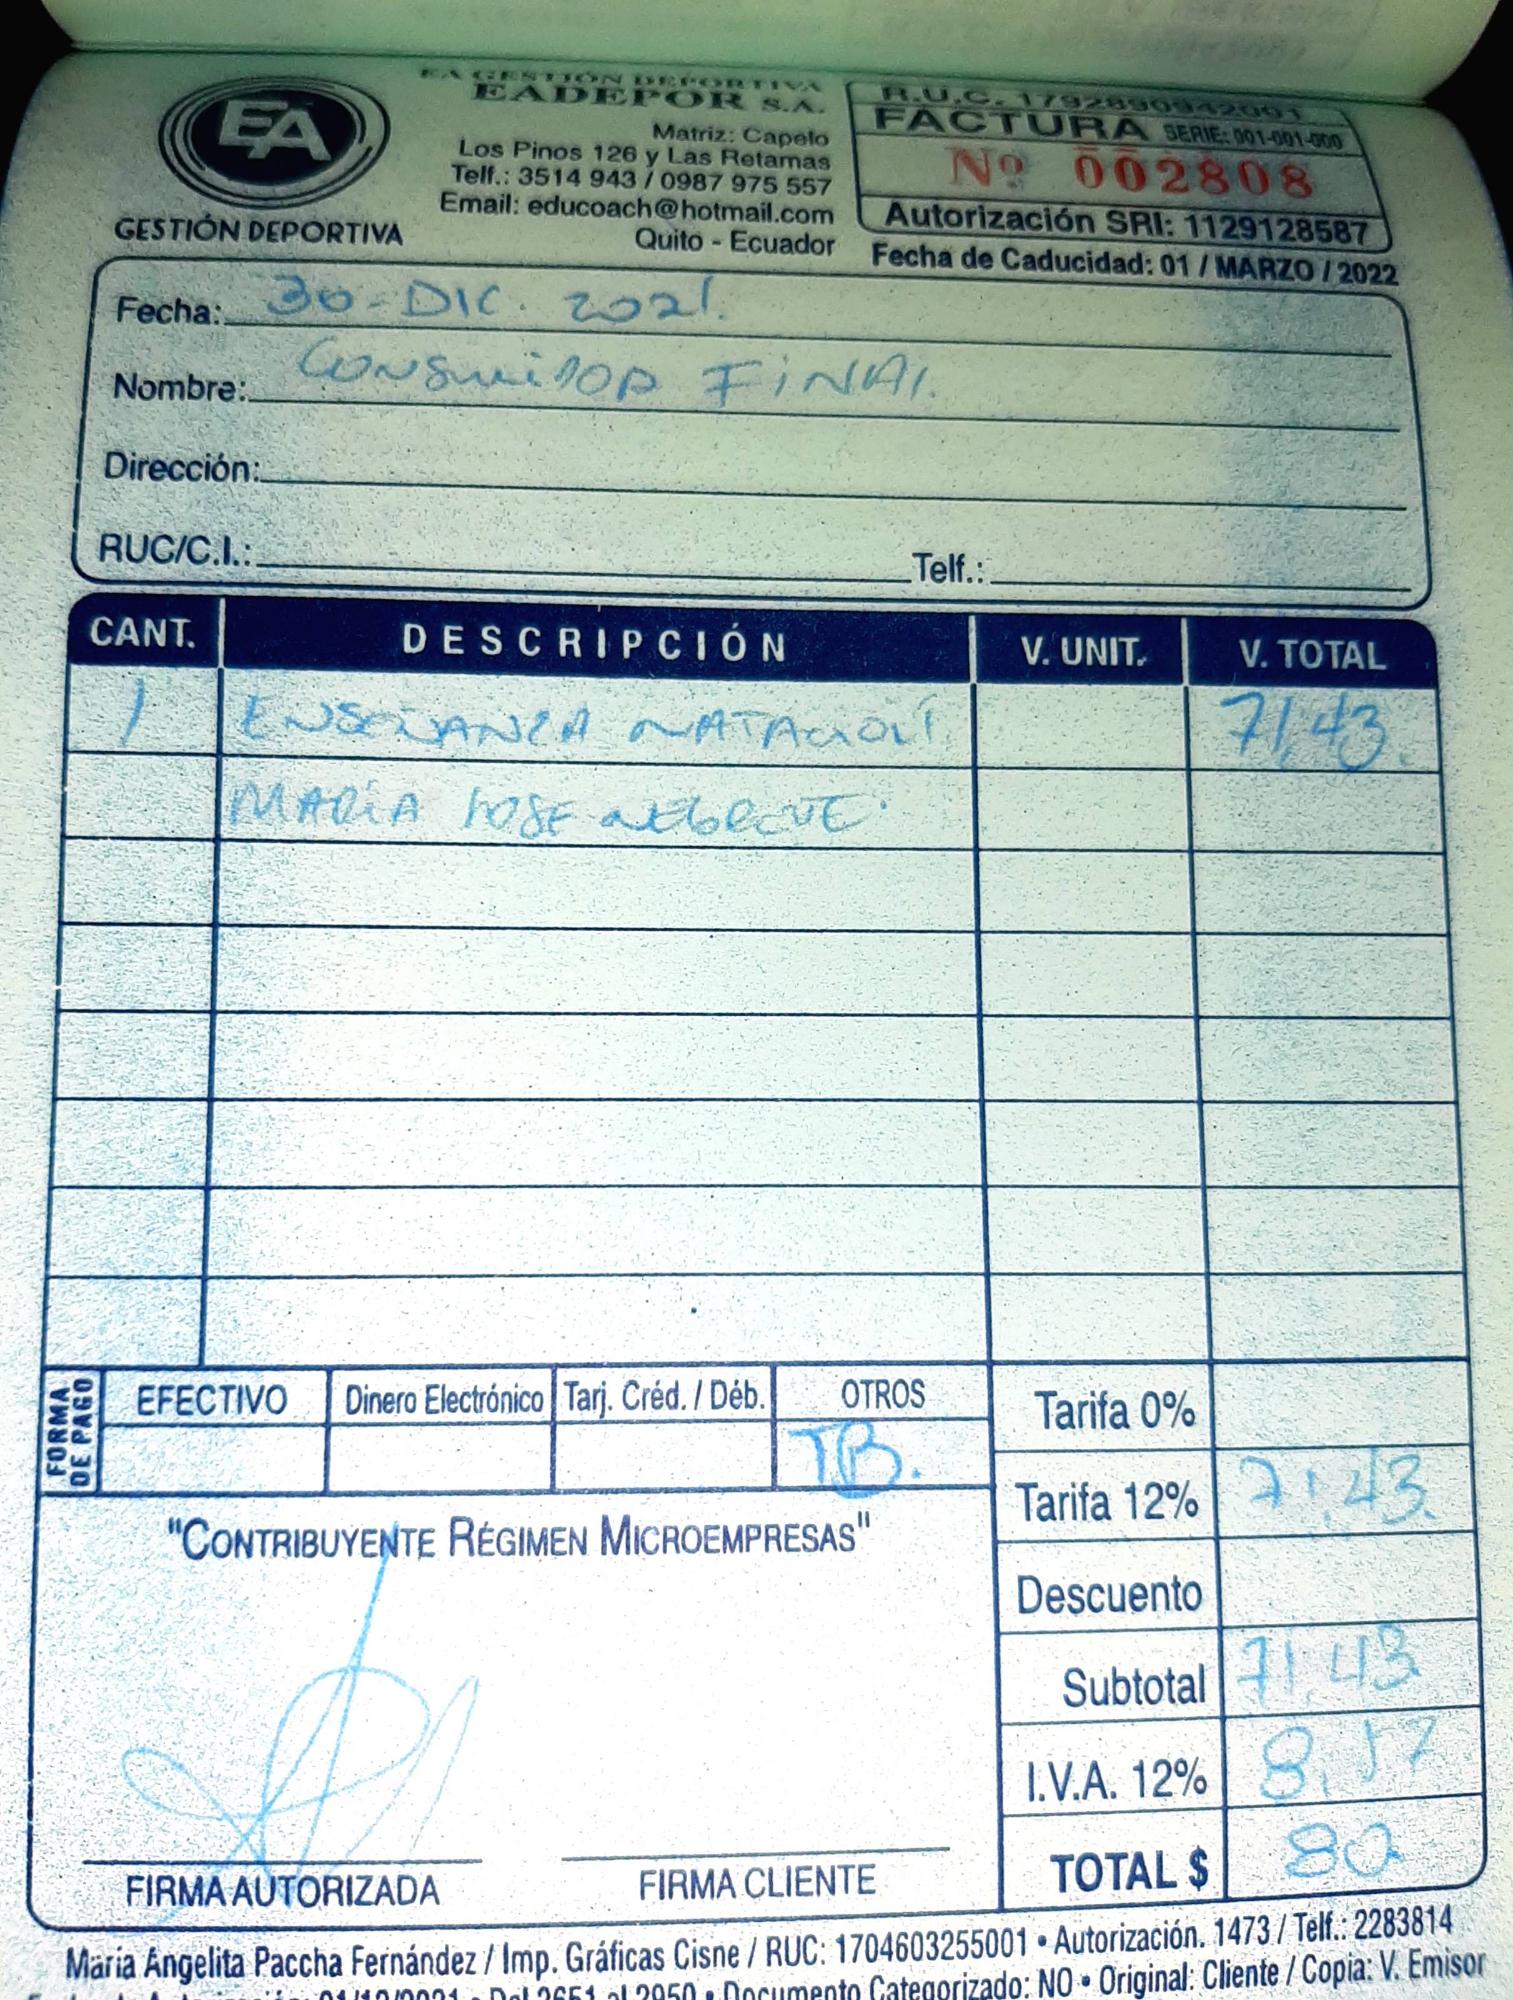 EA GESTIÓN DEPORTIVA
EADEPOR S.A.
EA
GESTIÓN DEPORTIVA
Matriz: Capelo
Los Pinos 126 y Las Retamas
Telf.: 3514 943 / 0987 975 557
Email: educoach@hotmail.com
Quito - Ecuador
R.U.C. 1792890942001
FACTURA SERIE: 001-001-000
Nº 002808
Autorización SRI: 1129128587
Fecha de Caducidad: 01 / MARZO / 2022
Fecha: 30-DIC. 2021.
Nombre: CONSUMIDOR FINAL.
Dirección:
RUC/C.I.: Telf.:
CANT. DESCRIPCIÓN V. UNIT. V. TOTAL
1 ENSEÑANZA NATACIÓN 71,43.
MARÍA JOSE NEGRETE.
FORMA DE PAGO
EFECTIVO Dinero Electrónico Tarj. Créd. / Déb. OTROS
TB.
Tarifa 0%
Tarifa 12% 71.43.
Descuento
Subtotal 71.43.
I.V.A. 12% 8,57
TOTAL $ 80
"CONTRIBUYENTE RÉGIMEN MICROEMPRESAS"
FIRMA AUTORIZADA FIRMA CLIENTE
Maria Angelita Paccha Fernández / Imp. Gráficas Cisne / RUC: 1704603255001 • Autorización. 1473 / Telf.: 2283814
01/12/2021 • Del 2651 al 2950 • Documento Categorizado: NO • Original: Cliente / Copia: V. Emisor